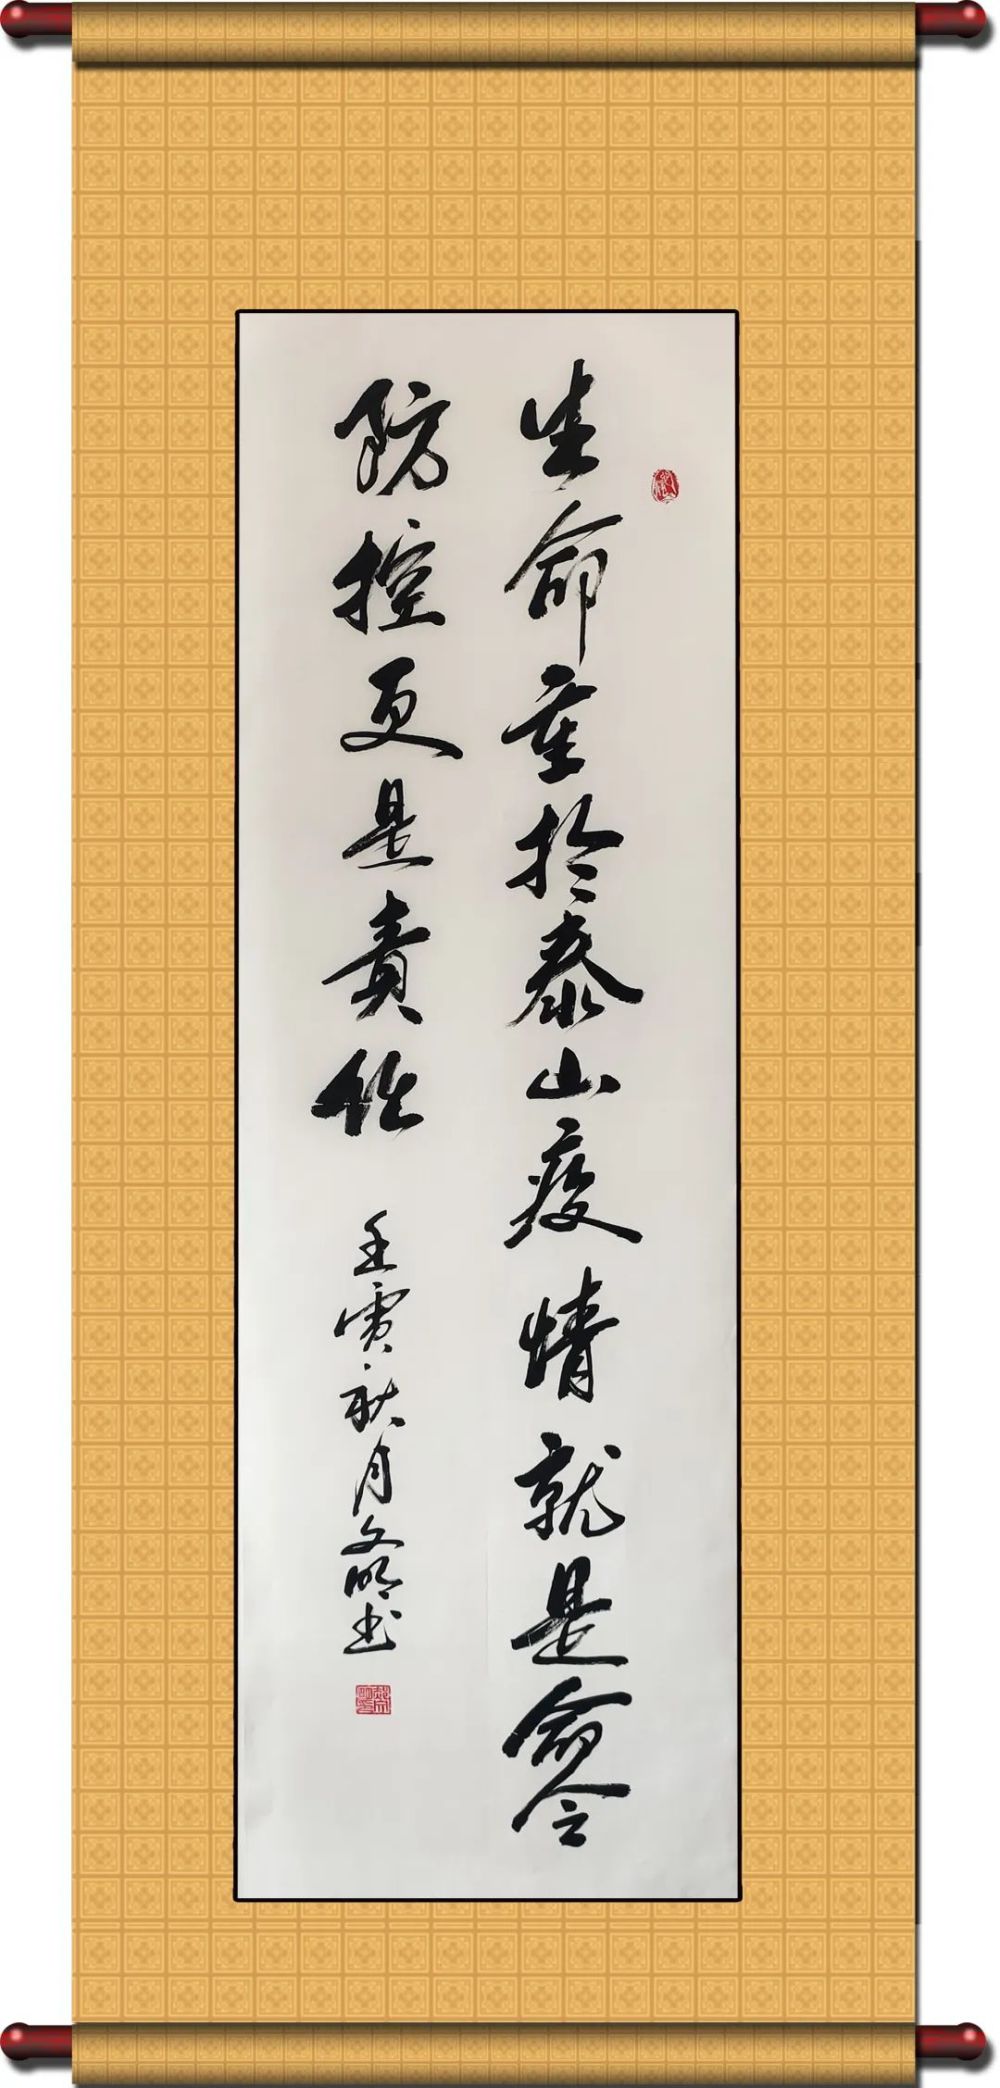 生命重於泰山疫情就是命令
防控更是責任
壬寅秋月文明书